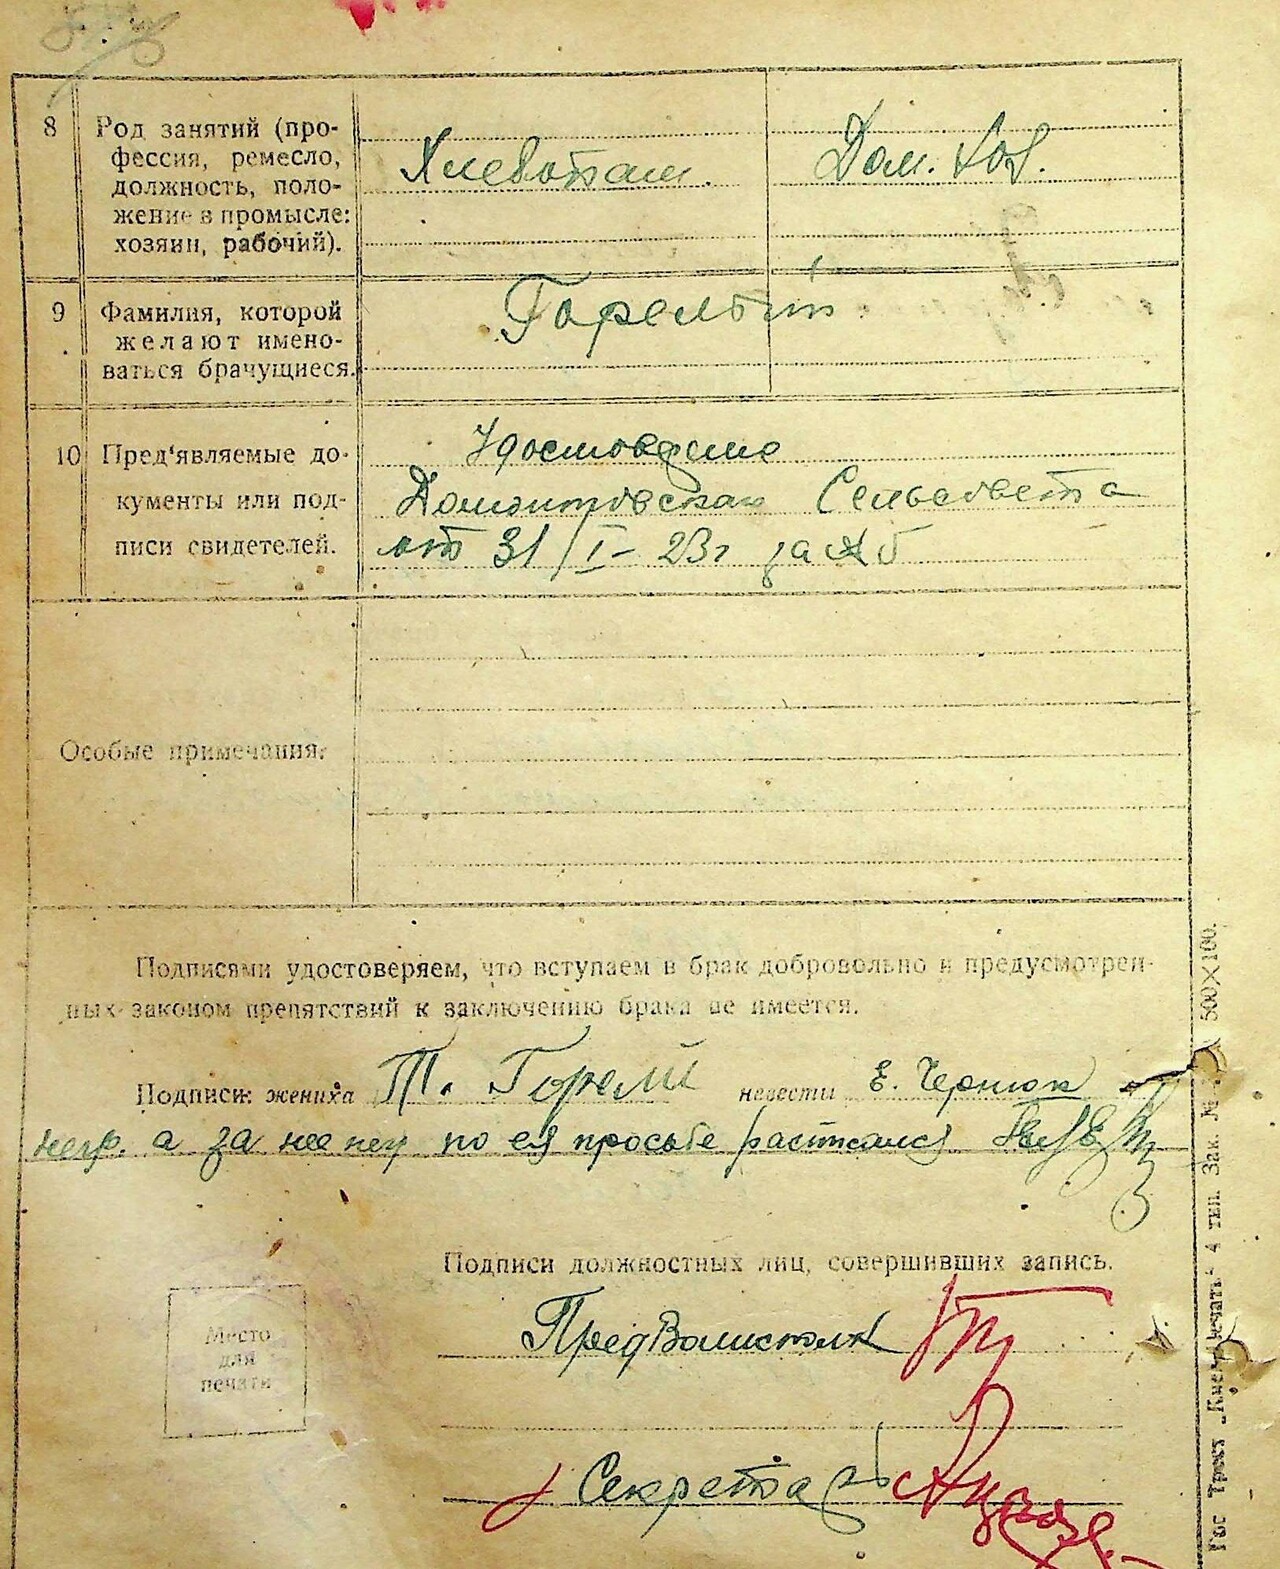 8 Род занятий (про-
фессия, ремесло,
должность, поло-
жение в промысле:
хозяин, рабочий).
Хлебопаш. Дом. Хоз.
9 Фамилия, которой
желают имено-
ваться брачущиеся.
10 Пред'являемые до-
кументы или под-
писи свидетелей.
Сельсовета
от 31/I-23г за № 5
Особые примечания:
Подписями удостоверяем, что вступаем в брак добровольно и предусмотрен-
ных законом препятствий к заключению брака не имеется.
Подписи: жениха Т. невесты Е. Чернюк
негр. а за нее по ея просьбе расписался
Подписи должностных лиц, совершивших запись.
ПредВолисполк
Место
для
печати
Секретарь
Гос Трест „Киев-Печать“ 4 тип. Зак. № 500×100.